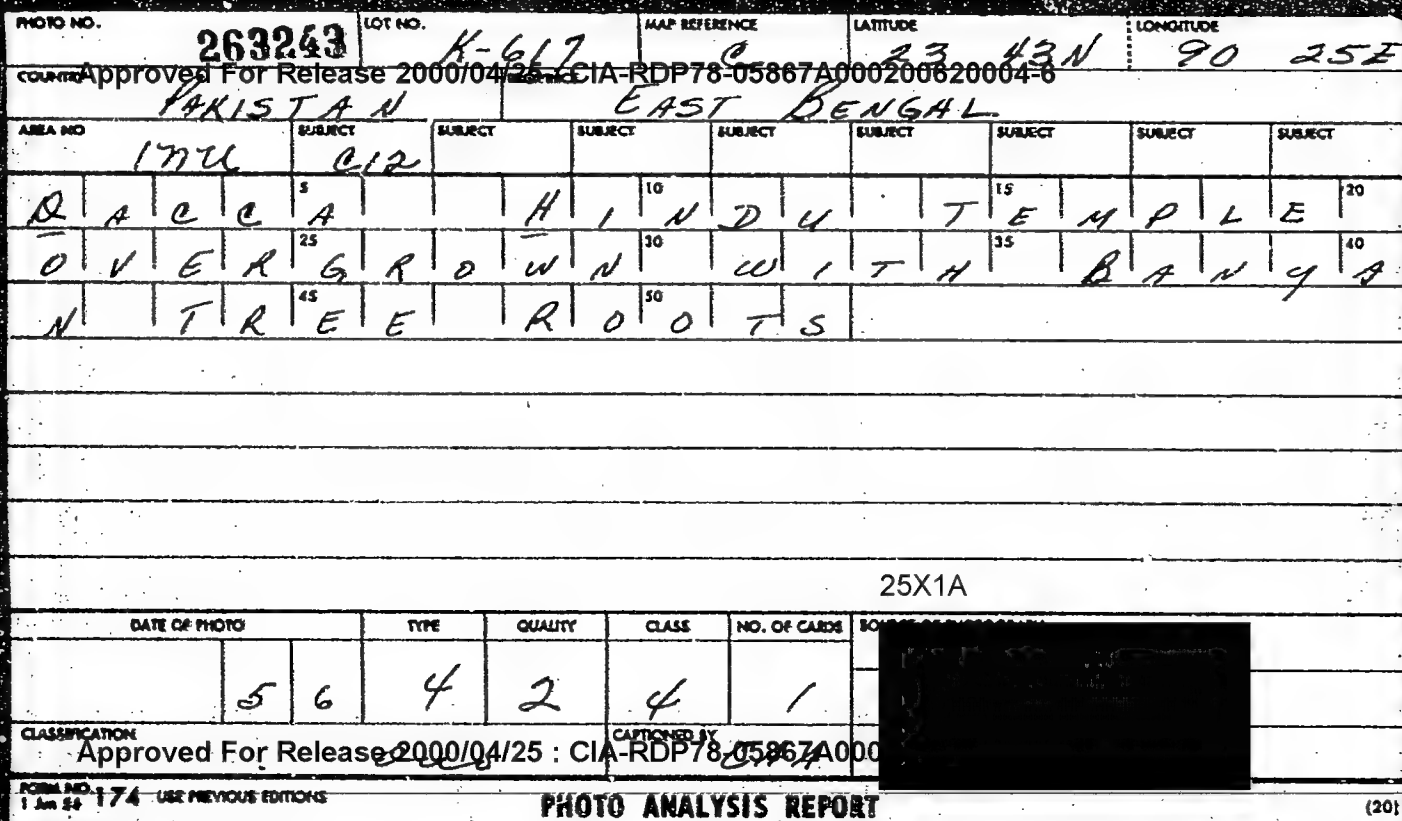 PHOTO NO. LOT NO. MAP REFERENCE LATITUDE LONGITUDE
263243 K-617 C 23 43N 90 25E
Approved For Release 2000/04/25 : CIA-RDP78-05867A000200620004-6
PAKISTAN EAST BENGAL
AREA NO SUBJECT SUBJECT SUBJECT SUBJECT SUBJECT SUBJECT SUBJECT SUBJECT
C12
5 10 15 20
DACCA HINDU TEMPLE
25 30 35 40
OVERGROWN WITH BANYA
45 50
N TREE ROOTS
25X1A
DATE OF PHOTO TYPE QUALITY CLASS NO. OF CARDS
56 4 2 4 1
CLASSIFICATION CAPTIONED BY
Approved For Release 2000/04/25 : CIA-RDP78-05867A000
FORM NO. 174 USE PREVIOUS EDITIONS PHOTO ANALYSIS REPORT (20)